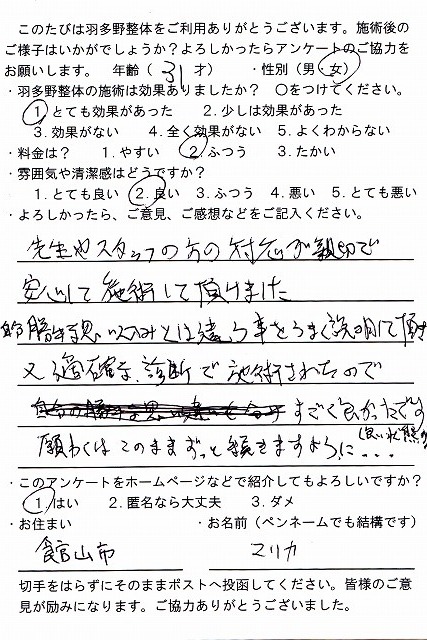 このたびは羽多野整体をご利用ありがとうございます。施術後の
ご様子はいかがでしょうか？よろしかったらアンケートのご協力を
お願いします。 年齢（ 31 才） ・性別（男・女）
・羽多野整体の施術は効果ありましたか？ 〇をつけてください。
1.とても効果があった 2.少しは効果があった
3.効果がない 4.全く効果がない 5.よくわからない
・料金は？ 1.やすい 2.ふつう 3.たかい
・雰囲気や清潔感はどうですか？
1.とても良い 2.良い 3.ふつう 4.悪い 5.とても悪い
・よろしかったら、ご意見、ご感想などをご記入ください。
先生やスタッフの方の対応が親切で
安心して施術して頂けました
勝手な思い込みとは違う事をうまく説明して頂き
又適確な診断で施術されたので
すごく良かったです
願わくはこのままずっと続きますように...
(良い状態が
・このアンケートをホームページなどで紹介してもよろしいですか？
1.はい 2.匿名なら大丈夫 3.ダメ
・お住まい ・お名前（ペンネームでも結構です）
館山市 マリカ
切手をはらずにそのままポストへ投函してください。皆様のご意
見が励みになります。ご協力ありがとうございました。